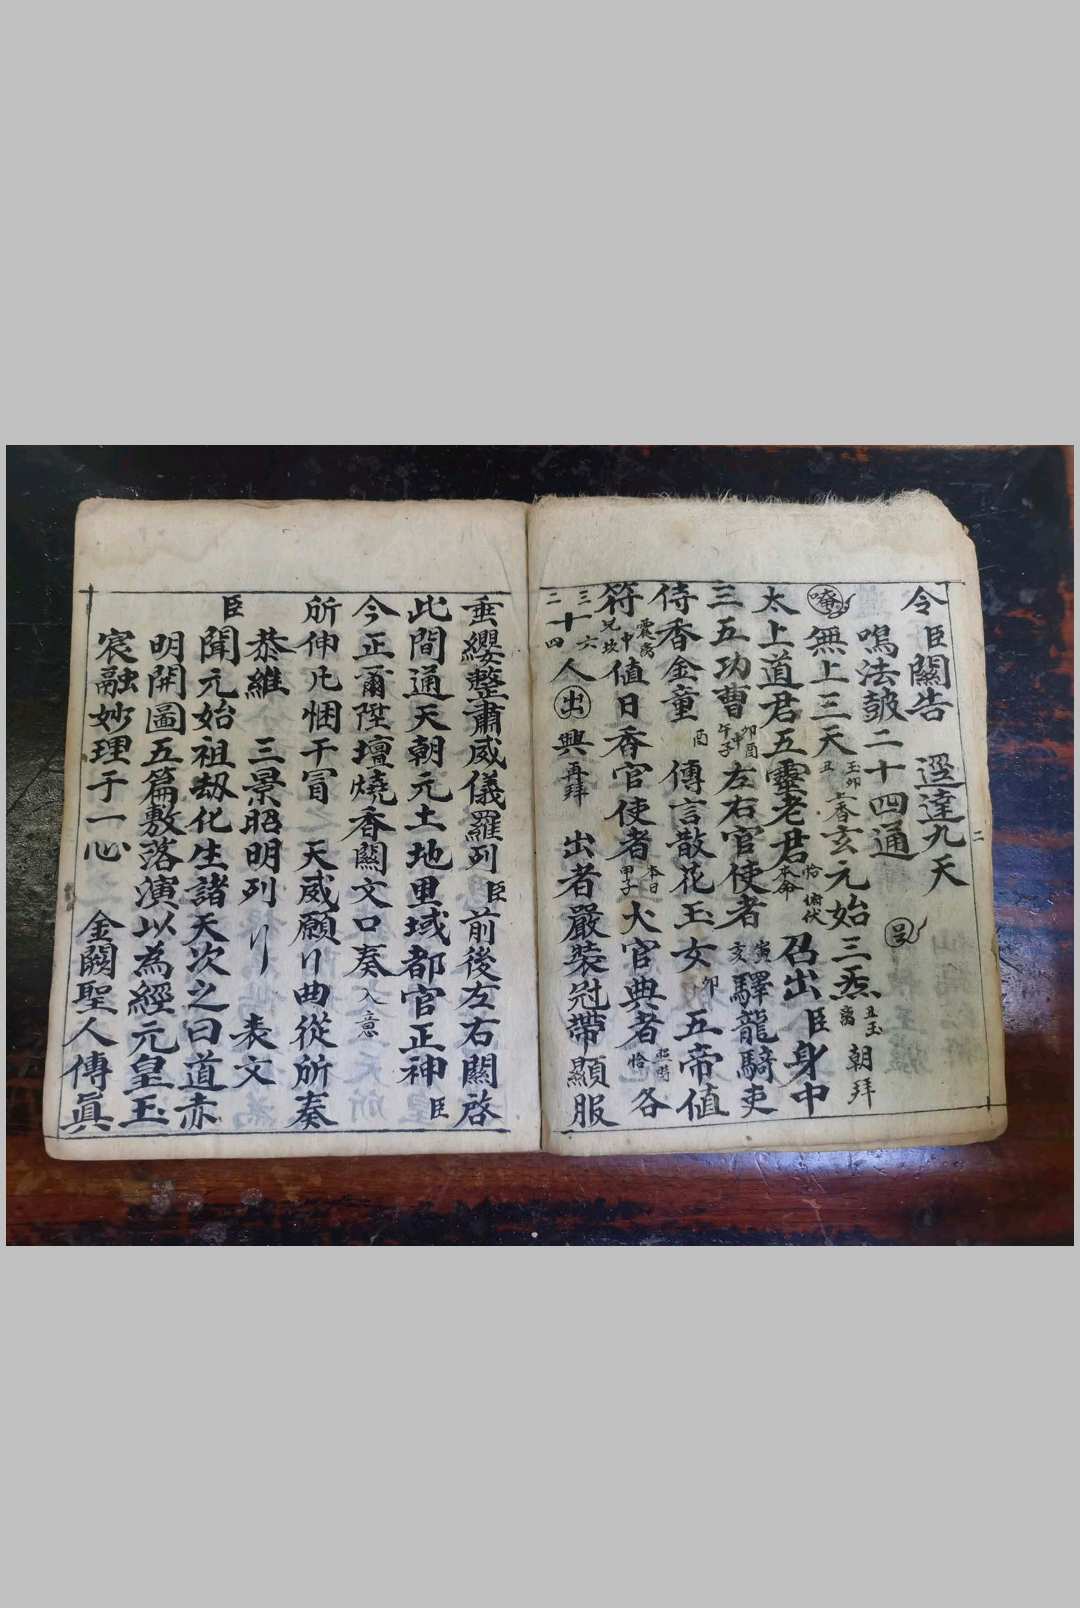 令臣關告 逕達九天
鳴法鼓二十四通
無上三天玉卯丑上香玄元始三炁丑玉离朝拜
太上道君五靈老君本命恰俯伏召出臣身中
三五功曹卯酉午子左右官使者寅亥驛龍騎吏
侍香金童酉傳言散花玉女卯五帝值
符震离兑坎值日香官使者本日甲子大官典者恰各
三十六二十四人出興再拜 出者嚴裝冠帶顯服
垂纓整肅威儀羅列臣前後左右關啓
此間通天朝元土地里域都官正神臣
今正爾陞壇燒香關文口奏入意
所伸凡悃干冐 天威願〻曲從所奏
恭維 三景昭明列〻 表文
臣聞元始祖劫化生諸天次之曰道赤
明開圖五篇敷落演以為經元皇玉
宸融妙理于一心 金闕聖人傳眞
二